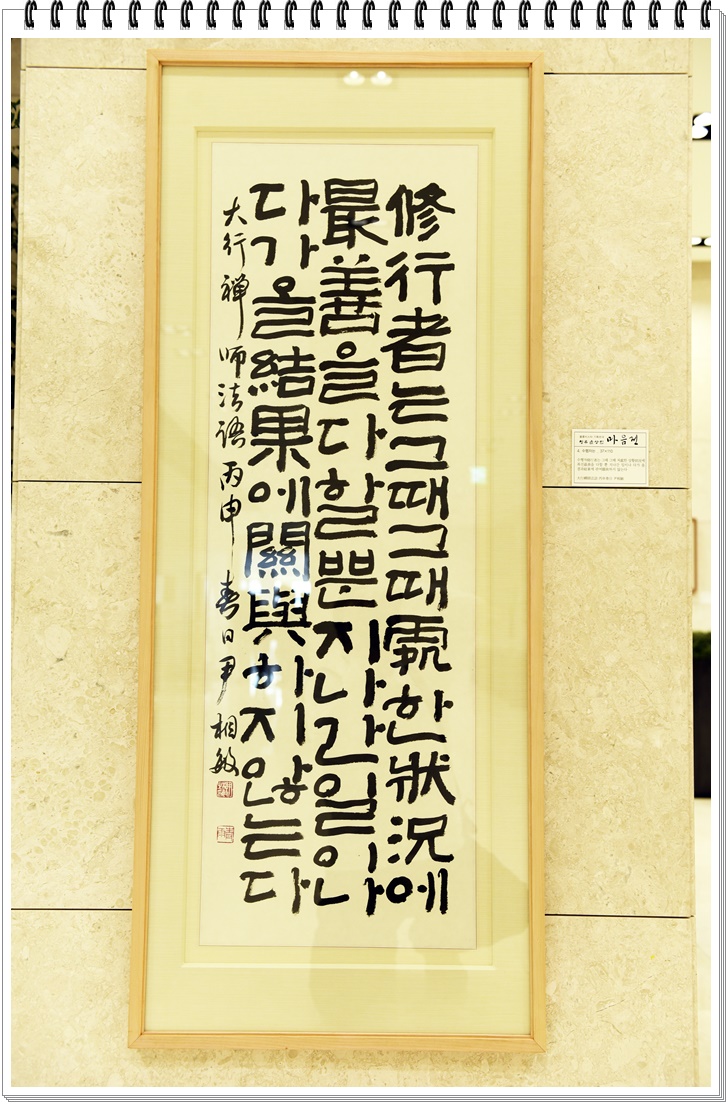 修行者는그때그때處한狀況에
最善을다할뿐지나간일이나
다가올結果에關與하지않는다
大行禅師法語 丙申春日 尹相敏
마음전